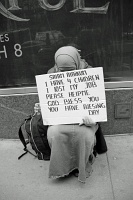 CH 8
I HAVE 4 CHILDREN
I LOST MY JOB
PLEASE HELP ME
GOD BLESS YOU
YOU HAVE BLESING
DAY